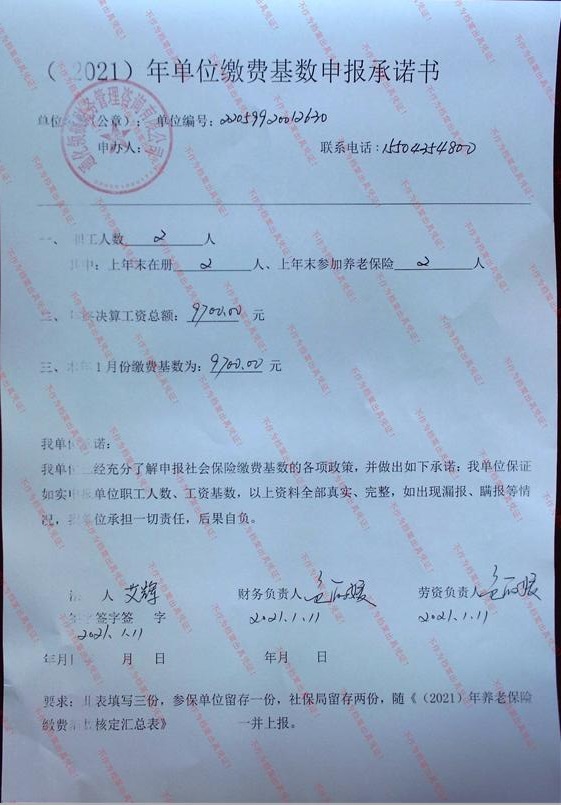 （2021）年单位缴费基数申报承诺书
单位（公章）： 单位编号：22059920012630
申办人： 联系电话：15504354800
一、职工人数 2 人
其中：上年末在册 2 人、上年末参加养老保险 2 人
二、年终决算工资总额：9700.00 元
三、本年1月份缴费基数为：9700.00 元
我单位承诺：
我单位已经充分了解申报社会保险缴费基数的各项政策，并做出如下承诺：我单位保证
如实申报单位职工人数、工资基数，以上资料全部真实、完整，如出现漏报、瞒报等情
况，我单位承担一切责任，后果自负。
法 人 艾辉 财务负责人 劳资负责人
签字签 字 2021.1.11 2021.1.11
2021.1.11
年月日 月 日 年月 日
要求：此表填写三份，参保单位留存一份，社保局留存两份，随《（2021）年养老保险
缴费基数核定汇总表》 一并上报。